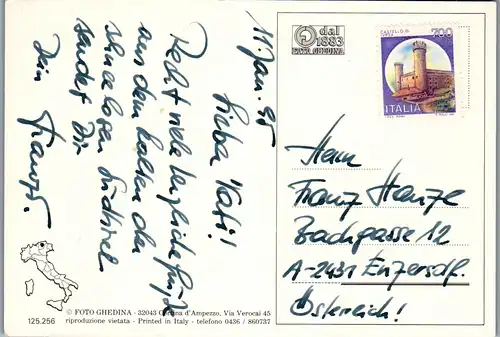 11. Jan. 95
Lieber Vati!
Recht viele herzliche Grüße
aus dem kalten aber
schneelosen Südtirol
sendet Dir
Dein
dal
1883
FOTO GHEDINA
700
ITALIA
Herrn
Franz
Bachgasse 12
A-2431 Enzersdf.
Österreich!
125.256
© FOTO GHEDINA - 32043 Cortina d'Ampezzo, Via Verocai 45
riproduzione vietata - Printed in Italy - telefono 0436 / 860737